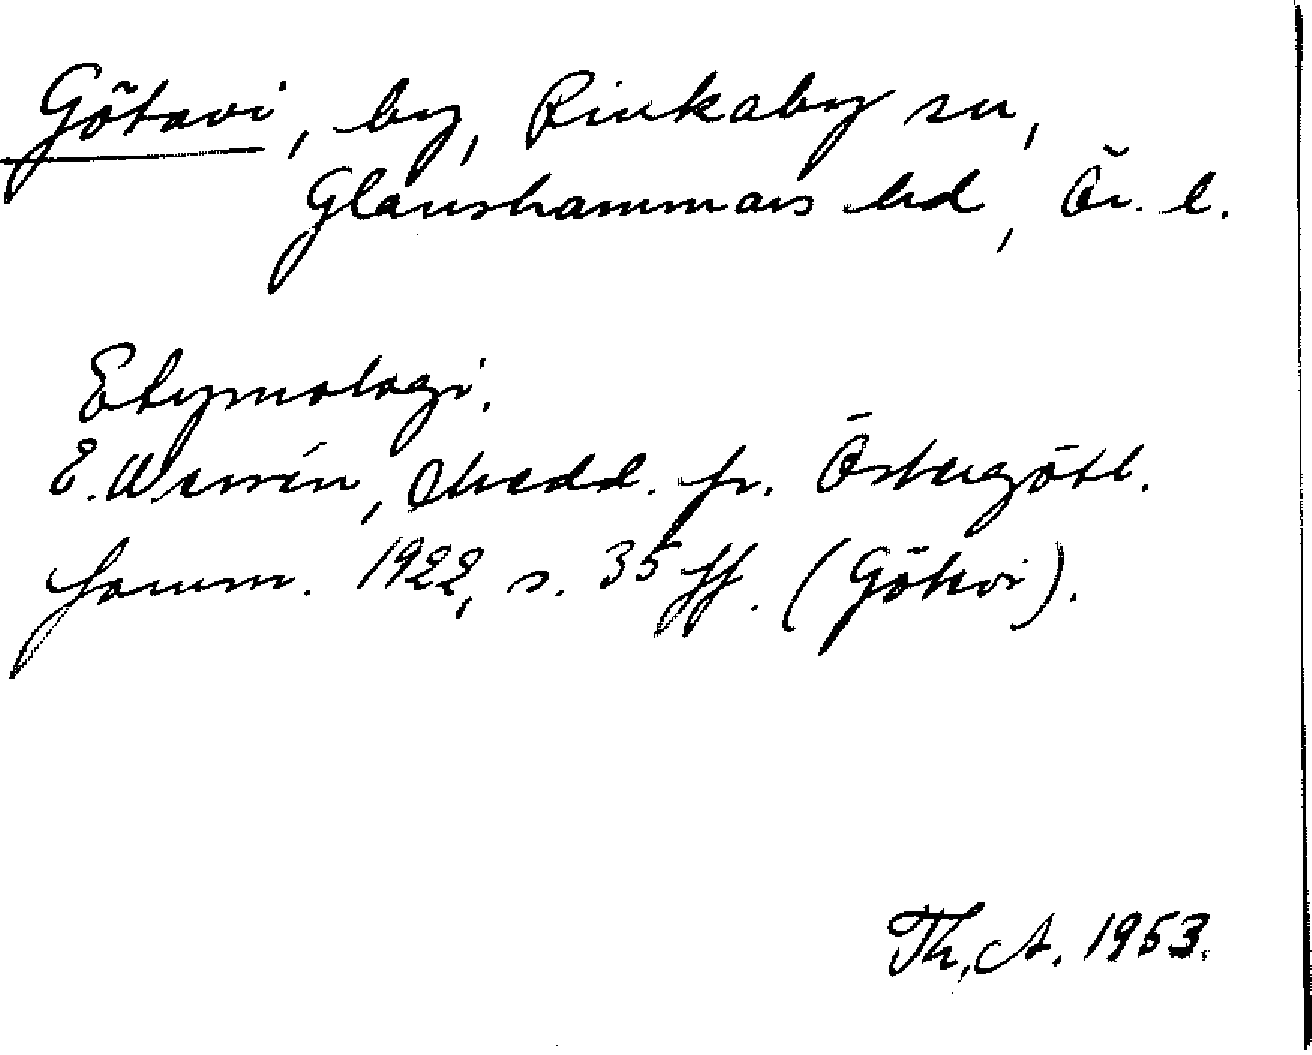 Götavi, by, Rinkaby sn,
Glanshammars hd, Ör. l.
Etymologi.
E. Wessén, Medd. fr. Östergötl.
fornm. 1922, s. 35 ff. (Götevi).
Th. A. 1953.